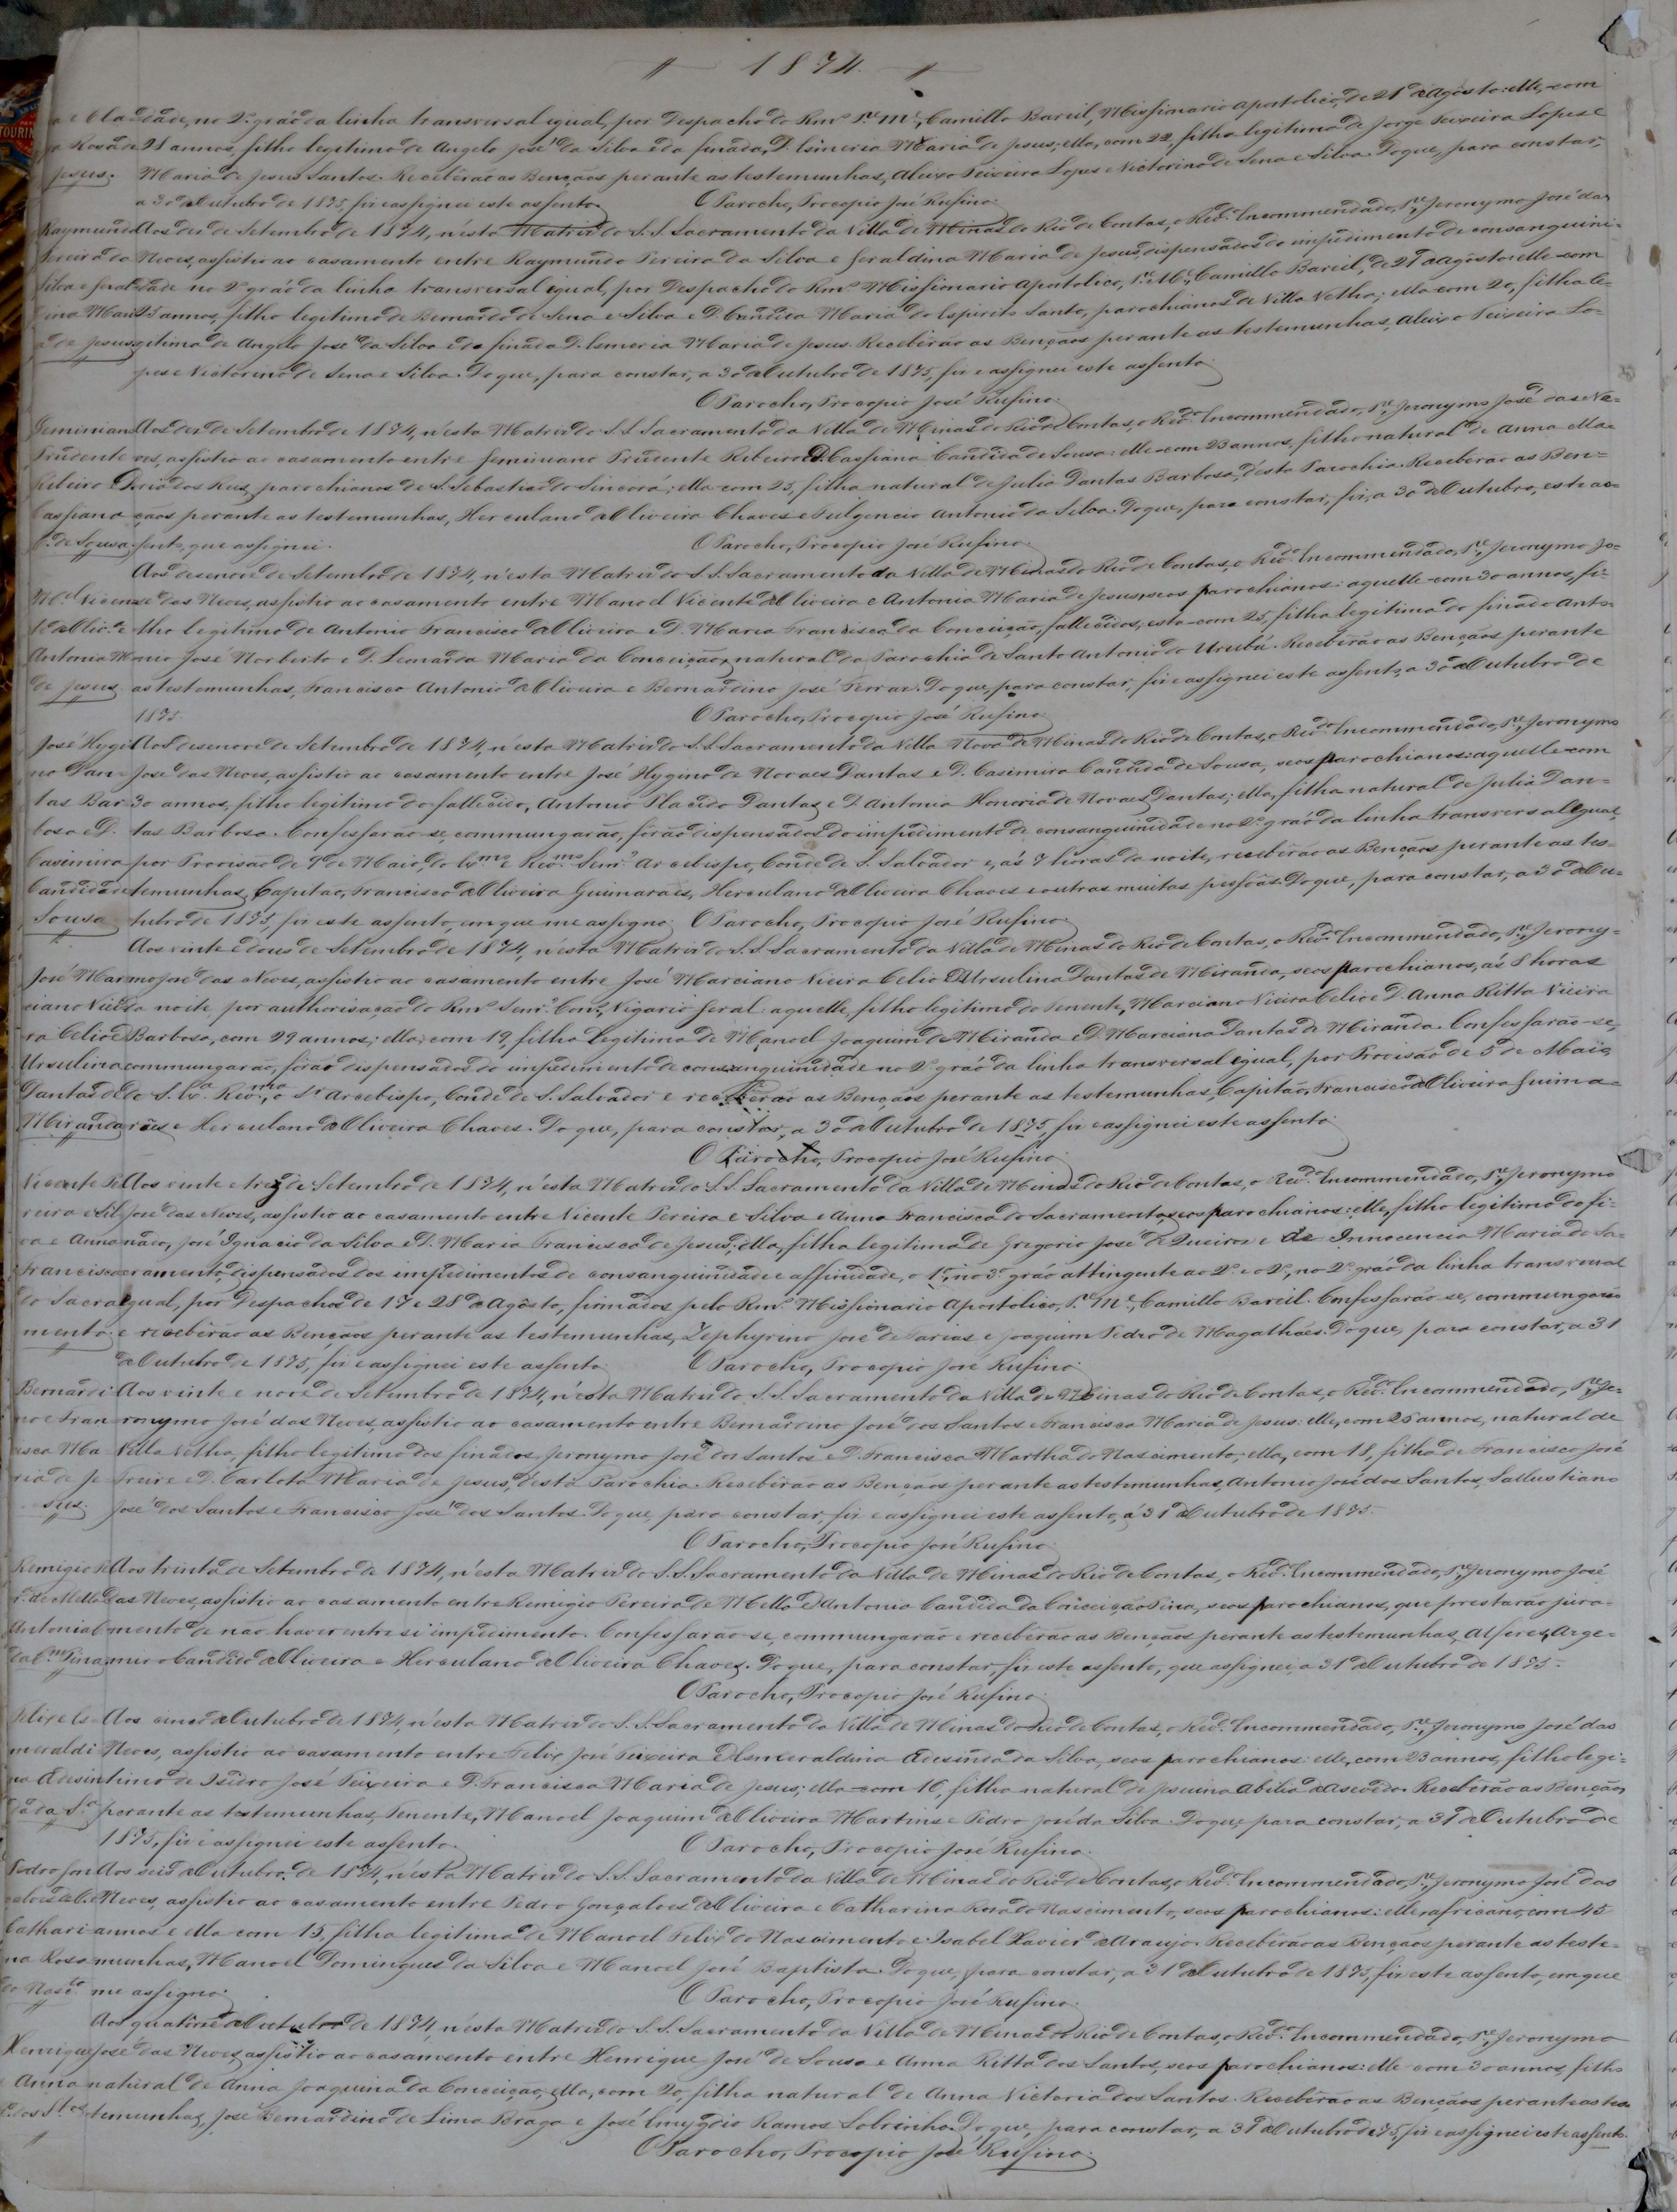 1874.
dade, no 2.º gráo da linha transversal igual, por Despacho do Rmº P.e M.e, Camillo Bareil, Missionario apostolico, de 21 d'Agosto: elle, com
28 annos, filho legitimo de Angelo José da Silva e da finada, D. Ismeria Maria de Jesus; ella, com 22, filha legitima de Jorge Teixeira Lopes e
Jesus. Maria de Jesus Santos. Receberão as Bençãos perante as testemunhas, Aleixo Teixeira Lopes e Victorino de Sena e Silva. Do que, para constar,
a 30 d'Outubro de 1875, fiz e assignei este assento. O Parocho, Procopio José Rufino.
Raymundo Aos dez de Setembro de 1874, n'esta Matriz do S.S. Sacramento da Villa de Minas do Rio de Contas, o Red.º Encommendado, P.e, Jeronymo José das
Pereira da Neves, assistio ao casamento entre Raymundo Pereira da Silva e Geraldina Maria de Jesus, dispensados do impedimento de consanguini-
Silva e Geral- dade no 2.º gráo da linha transversal igual, por Despacho do Rmº Missionario apostolico, P.e M.e, Camillo Bareil, de 21 d'Agosto: elle com
dina Mari- 25 annos, filho legitimo de Bernardo de Sena e Silva e D. Candida Maria do Espirito Santo, parochianos de Villa Velha; ella com 20, filha le-
a de Jesus. gitima de Angelo José da Silva e da finada D. Ismeria Maria de Jesus. Receberão as Bençãos perante as testemunhas, Aleixo Teixeira Lo-
pes e Victorino de Sena e Silva. Do que, para constar, a 30 d'Outubro de 1875, fiz e assignei este assento.
O Parocho, Procopio José Rufino.
Geminiano Aos dez de Setembro de 1874, n'esta Matriz do S.S. Sacramento da Villa de Minas do Rio de Contas, o Red.º Encommendado, P.e, Jeronymo José das Ne-
Prudente ves, assistio ao casamento entre Geminiano Prudente Ribeiro e D. Cassiana Candida de Sousa: elle com 23 annos, filho natural de Anna Ma-
Ribeiro e D. ria dos Reis, parochianos de S. Sebastião do Sincorá; ella com 25, filha natural de Julia Dantas Barbosa, d'esta Parochia. Receberão as Ben-
Cassiana çãos perante as testemunhas, Herculano d'Oliveira Chaves e Fulgencio Antonio da Silva. Do que, para constar, fiz, a 30 d'Outubro, este as-
C. de Sousa. sento, que assignei. O Parocho, Procopio José Rufino.
Aos desenove de Setembro de 1874, n'esta Matriz do S.S. Sacramento da Villa de Minas do Rio de Contas, o Red.º Encommendado, P.e, Jeronymo Jo-
M.el Vicen- sé das Neves, assistio ao casamento entre Manoel Vicente d'Oliveira e Antonia Maria de Jesus, seos parochianos: aquelle com 30 annos, fi-
te d'Oliv.ª e lho legitimo de Antonio Francisco d'Oliveira e D. Maria Francisca da Conceição, fallecidos, esta com 25, filha legitima do finado Anto-
Antonia M. nio José Norberto e D. Leonarda Maria da Conceição, natural da Parochia de Santo Antonio do Urubú. Receberão as Bençãos perante
de Jesus as testemunhas, Francisco Antonio d'Oliveira e Bernardino José Ferraz. Do que, para constar, fiz e assignei este assento, a 30 d'Outubro de
1875. O Parocho, Procopio José Rufino.
José Hygi- Aos desenove de Setembro de 1874, n'esta Matriz do S.S. Sacramento da Villa Nova de Minas do Rio de Contas, o Red.º Encommendado, P.e, Jeronymo
no Dan- José das Neves, assistio ao casamento entre José Hygino de Novaes Dantas e D. Casimira Candida de Sousa, seos parochianos: aquelle com
tas Bar- 30 annos, filho legitimo do fallecido, Antonio Placido Dantas e D. Antonia Honoria de Novaes Dantas; ella, filha natural de Julia Dan-
bosa e D. tas Barbosa. Confessarão-se, commungarão, forão dispensados do impedimento de consanguinidade no 2.º gráo da linha transversal igual,
Casimira por Provisão de 9 de Maio, do Ex.mo e Rev.mo Senr. Arcebispo, Conde de S. Salvador e, ás 7 horas da noite, receberão as Bençãos perante as tes-
Candida de temunhas, Capitão, Francisco d'Oliveira Guimarães, Herculano d'Oliveira Chaves e outras muitas pessôas. Do que, para constar, a 30 d'Ou-
Sousa tubro de 1875, fiz este assento, em que me assigno. O Parocho, Procopio José Rufino.
Aos vinte e dous de Setembro de 1874, n'esta Matriz do S.S. Sacramento da Villa de Minas do Rio de Contas, o Red.º Encommendado, P.e, Jerony-
José Mar- mo José das Neves, assistio ao casamento entre José Marciano Vieira Celio e D. Ursulina Dantas de Miranda, seos parochianos, ás 8 horas
ciano Viei- da noite, por authorisação do Rmº Senr. Con.º, Vigario Geral: aquelle, filho legitimo do Tenente, Marciano Vieira Celio e D. Anna Ritta Vieira
ra Celio e D. Barbosa, com 29 annos; ella, com 19, filha legitima de Manoel Joaquim de Miranda e D. Marciana Dantas de Miranda. Confessarão-se,
Ursulina commungarão, forão dispensados do impedimento de consanguinidade no 2.º gráo da linha transversal igual, por Provisão de 5 de Maio,
Dantas de do S. Ex.ª Rev.ma, o Sr. Arcebispo, Conde de S. Salvador e receberão as Bençãos perante as testemunhas, Capitão, Francisco d'Oliveira Guima-
Miranda rães e Herculano d'Oliveira Chaves. Do que, para constar, a 30 d'Outubro de 1875, fiz e assignei este assento.
O Parocho, Procopio José Rufino.
Vicente Pe- Aos vinte e trez de Setembro de 1874, n'esta Matriz do S.S. Sacramento da Villa de Minas do Rio de Contas, o Red.º Encommendado, P.e, Jeronymo
reira e Sil- José das Neves, assistio ao casamento entre Vicente Pereira e Silva e Anna Francisca do Sacramento, seos parochianos: elle, filho legitimo do fi-
va e Anna nado, José Ignacio da Silva e D. Maria Francisca de Jesus; ella, filha legitima de Gregorio José de Queiroz e de Innocencia Maria do Sa-
Francisca cramento, dispensados dos impedimentos de consanguinidade e affinidade, o 1.º, no 3.º gráo attingente ao 2.º e o 2.º, no 2.º gráo da linha transversal
do Sacra- igual, por Despachos de 17 e 28 d'Agosto, firmados pelo Rmº Missionario Apostolico, P.e M.e, Camillo Bareil. Confessarão-se, commungarão
mento. e receberão as Bençãos perante as testemunhas, Zephyrino José de Farias e Joaquim Pedro de Magalhães. Do que, para constar, a 31
d'Outubro de 1875, fiz e assignei este assento. O Parocho, Procopio José Rufino.
Bernardi- Aos vinte e nove de Setembro de 1874, n'esta Matriz do S.S. Sacramento da Villa de Minas do Rio de Contas, o Red.º Encommendado, P.e, Je-
no e Fran- ronymo José das Neves, assistio ao casamento entre Bernardino José dos Santos e Francisca Maria de Jesus: elle, com 25 annos, natural de
cisca Ma- Villa Velha, filho legitimo dos finados, Jeronymo José dos Santos e D. Francisca Martha do Nascimento; ella, com 18, filha de Francisco José
ria de Je- Freire e D. Carlota Maria de Jesus, d'esta Parochia. Receberão as Bençãos perante as testemunhas, Antonio José dos Santos, Sallustiano
sus. José dos Santos e Francisco José dos Santos. Do que, para constar, fiz e assignei este assento, á 31 d'Outubro de 1875.
O Parocho, Procopio José Rufino.
Remigio P. Aos trinta de Setembro de 1874, n'esta Matriz do S.S. Sacramento da Villa de Minas do Rio de Contas, o Red.º Encommendado, P.e, Jeronymo José
r.ª de Mello das Neves, assistio ao casamento entre Remigio Pereira de Mello e D. Antonia Candida da Conceição Pina, seos parochianos, que prestarão jura-
Antonia C. mento de não haver entre si impedimento. Confessarão-se, commungarão e receberão as Bençãos perante as testemunhas, Alferes, Arge-
da C.m Pina miro Candido d'Oliveira e Herculano d'Oliveira Chaves. Do que, para constar, fiz este assento, que assignei, a 31 d'Outubro de 1875.
O Parocho, Procopio José Rufino.
Felix e Es- Aos cinco d'Outubro de 1874, n'esta Matriz do S.S. Sacramento da Villa de Minas do Rio de Contas, o Red.º Encommendado, P.e, Jeronymo José das
meraldi- Neves, assistio ao casamento entre Felix José Teixeira e D. Esmeraldina Adesinda da Silva, seos parochianos: elle, com 23 annos, filho legi-
na Adesin- timo de Isidro José Teixeira e D. Francisca Maria de Jesus; ella com 16, filha natural de Jesuina Abilia d'Asevedo. Receberão as Bençãos
da da S.ª perante as testemunhas, Tenente, Manoel Joaquim d'Oliveira Martins e Pedro José da Silva. Do que, para constar, a 31 d'Outubro de
1875, fiz e assignei este assento. O Parocho, Procopio José Rufino.
Pedro Gon- Aos seis d'Outubro de 1874, n'esta Matriz do S.S. Sacramento da Villa de Minas do Rio de Contas, o Red.º Encommendado, P.e, Jeronymo José das
calves d'O. e Neves, assistio ao casamento entre Pedro Gonçalves d'Oliveira e Catharina Rosa do Nascimento, seos parochianos: elle, africano, com 45
Cathari- annos e ella com 15, filha legitima de Manoel Felix do Nascimento e Isabel Xavier d'Araujo. Receberão as Bençãos perante as teste-
na Rosa munhas, Manoel Domingues da Silva e Manoel José Baptista. Do que, para constar, a 31 d'Outubro de 1875, fiz este assento, em que
do Nasc.º me assigno. O Parocho, Procopio José Rufino.
Aos quatorze d'Outubro de 1874, n'esta Matriz do S.S. Sacramento da Villa de Minas do Rio de Contas, o Red.º Encommendado, P.e, Jeronymo
Henrique José das Neves, assistio ao casamento entre Henrique José de Sousa e Anna Ritta dos Santos, seos parochianos: elle com 30 annos, filho
Anna natural de Anna Joaquina da Conceição; ella, com 20, filha natural de Anna Victoria dos Santos. Receberão as Bençãos perante as tes-
dos S.tos temunhas, José Bernardino de Lima Braga e José Emygdio Ramos Sobrinho. Do que, para constar, a 31 d'Outubro de 75, fiz e assignei este assento.
O Parocho, Procopio José Rufino.